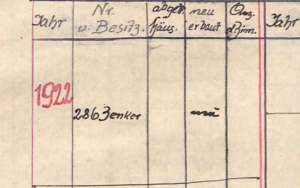 Jahr Nr. u. Besitz. abgebr. Häus. neu erbaut Anz. d. Zim. Jahr
1922
286 Jenker neu